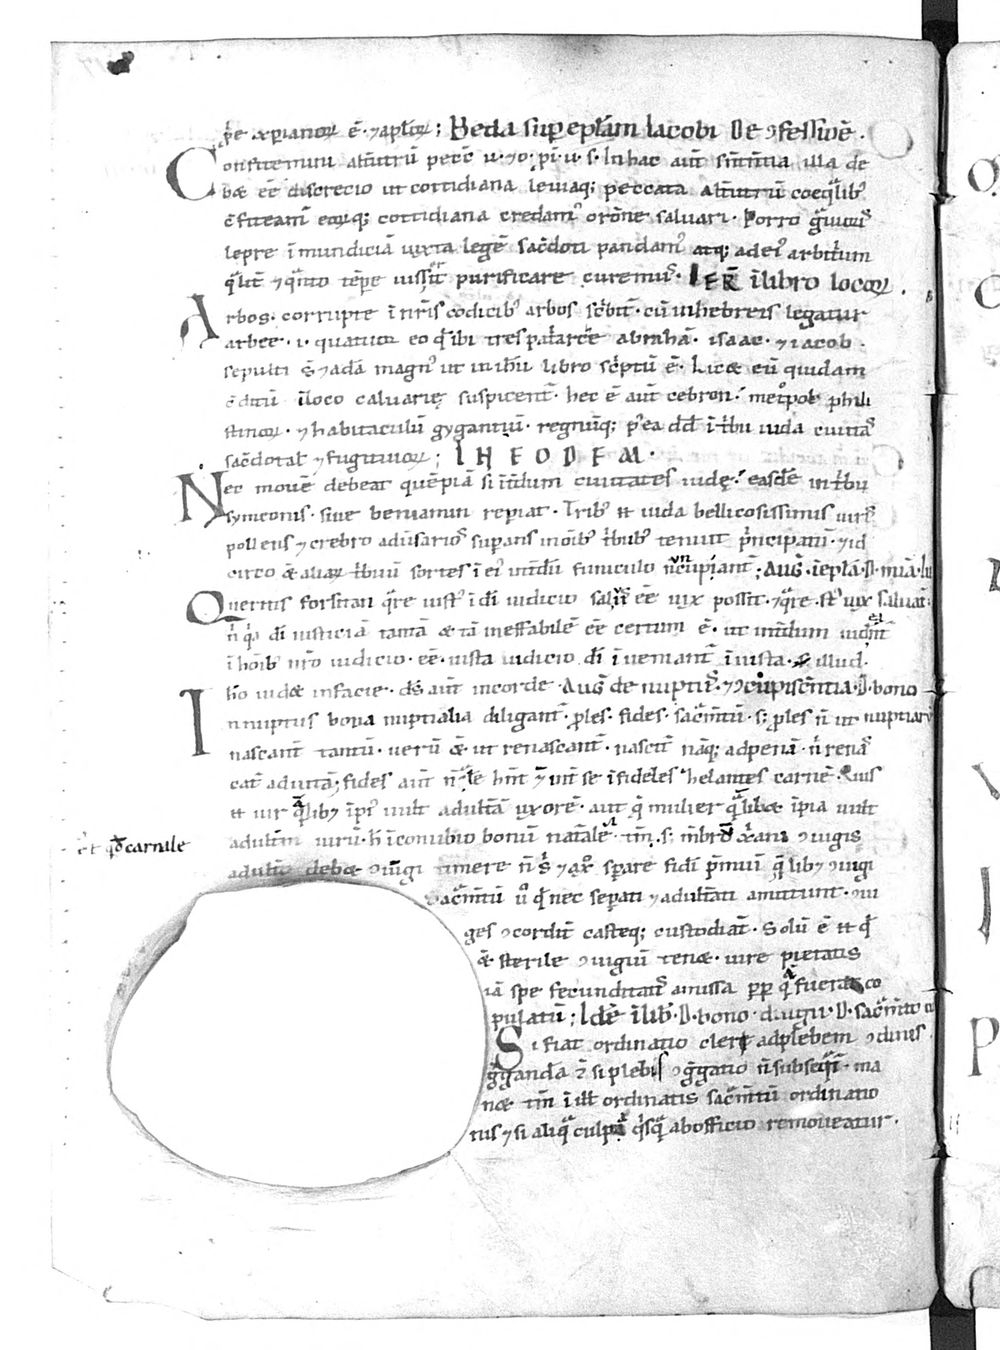 p̄e xp̄ianoꝝ ē · ⁊ apl̄oꝝ ; Beda sup epl̄am Iacobi De ꝯfessiōē .
Confitemini alt̄utrū pecc̄ u · ⁊ o · p̄ i · u · s · In hac aut̄ sn̄tentia illa de
bꝫ eē discrecio ut cottidiana leuiaq; peccata alt̄utrū coeq̄lib᷒
ꝯfiteam᷒ eoꝝq; cottidiana credam᷒ orōne saluari · Porro g̈uioris
lepre īmundiciā iuxta legē sac̄doti pandam᷒ atq; ad ei᷒ arbitrium
q̄lit̄ ⁊ q̄nto tēp̄e iusserit purificare curemus · IER̄ ī libro locoꝝ .
Arbos · corrupte ī nr̄is codicib᷒ arbos sc̄bit̄ · cū in hebreis legatur
arbee · i · quatuor eo qd̄ ibi tres pat̄arce abrahā · isaac · ⁊ iacob ·
sepulti s̄ ⁊ adā magn᷒ ut in ih̄u libro sc̄ptū ē · Licet eū quidam
ꝯditū ī loco caluarię suspicent̄ · hec ē aut̄ cebron · met̊pol̄ phili
stinoꝝ · ⁊ habitaculū gygantiū · regnūq; p᷒ea dd̄ ī t̄bu iuda ciuitas
sac̄dotal̄ ⁊ fugitiuoꝝ ; I H E O D E M ·
Nec mouē debeat quēpiā si int̄dum ciuitates iudę · easdē in t̄bu
symeonis · siue beniamin rep̄iat · Trib᷒ eī iuda bellicosissimis uiris
pollens ⁊ crebro adu̅sarios sup̄ans in oīb᷒ t̄bub᷒ tenuit p̄ncipatū · ⁊ id
circo ⁊ aliaꝝ t̄buū sortes ī ei᷒ int̄dū funiculo nūcupiant̄ ; Aug̅ · ī epl̄a · D · miā · lu
Queritis forsitan q̄re iust᷒ ī dī iudicio saluus eē uix possit · ⁊ q̄re · st᷒ uix saluat̄ ·
n̄ q̄a dī iusticiā tantā ⁊ tā ineffabilē eē certum ē · ut int̄dum uident̄
ī hoīb᷒ nr̄o iudicio · eē · iusta iudicio dī ī ueniant̄ ī iusta · ⁊ illud ·
ho uidet in facie · ds̄ aut̄ in corde · Aug̅ de nuptiis · ⁊ ꝯcupiscn̄tia · D · bono
In nuptiis bona nuptialia diligant̄ · ples · fides · sac̄mtū · s; ples n̄ ut nuptiarū
nascant̄ tantū · uerū ⁊ ut renascant̄ · nascit̄ naq; ad penā · n̄ renas
cat̄ ad uitā ; fides aut̄ n̄ q̄lē hn̄t ⁊ int̄ se īfideles helantes carnē · Quis
eī uir q̄lib; īpi᷒ uult adult̄ā uxorē · aut q̄ mulier q̄libet īpia uult
adult̄m uirū · h̄ ī conubio bonū nat̄alē · tn̄ · s; mēbrū xp̄iani ꝯiugis
et qd̄ carnale
adult̄ debet ꝯiugi timere n̄ s̄ ⁊ a xp̄o sp̄are fidī p̄miū q̄lib; ꝯiugi
sac̄mtū u᷒ qd̄ nec sep̄ati ⁊ adult̄ati amittunt · ꝯiu
ges ꝯcordit̄ casteq; custodiat̄ · Solū ē eī qd̄
⁊ sterile ꝯiugiū tenet · iure pietatis
iā spe fecunditatis amissa pp̄ q̄ fuerat co
pulatū ; Idē ī lib᷒ · D · bono · ꝯiugii · D · sac̄mto
Si fiat ordinatio cleri ad plebem ꝯ diuis
g̈ganda ⁊ si plebis ꝯg̈gatio n̄ subseqt̄ · ma
net tn̄ ī ill̄ ordinatis sac̄mtū ordinatio
nis ⁊ si aliq̄ culpa q̄sq̄ ab officio remoueatur .